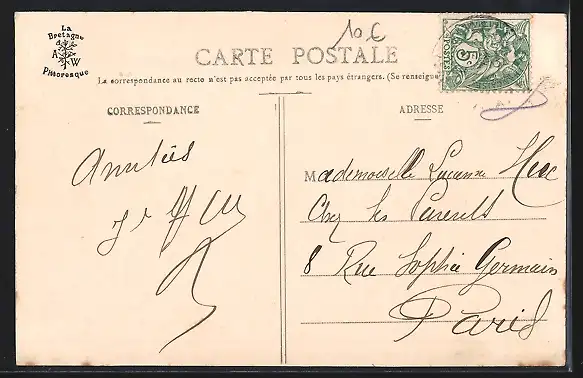 La
Bretagne
A W
Pittoresque
10 €
CARTE POSTALE
La correspondance au recto n'est pas acceptée par tous les pays étrangers. (Se renseigne
CORRESPONDANCE
ADRESSE
Amitiés
Mademoiselle Lucienne
Chez les Parents
8 Rue Sophie Germain
Paris